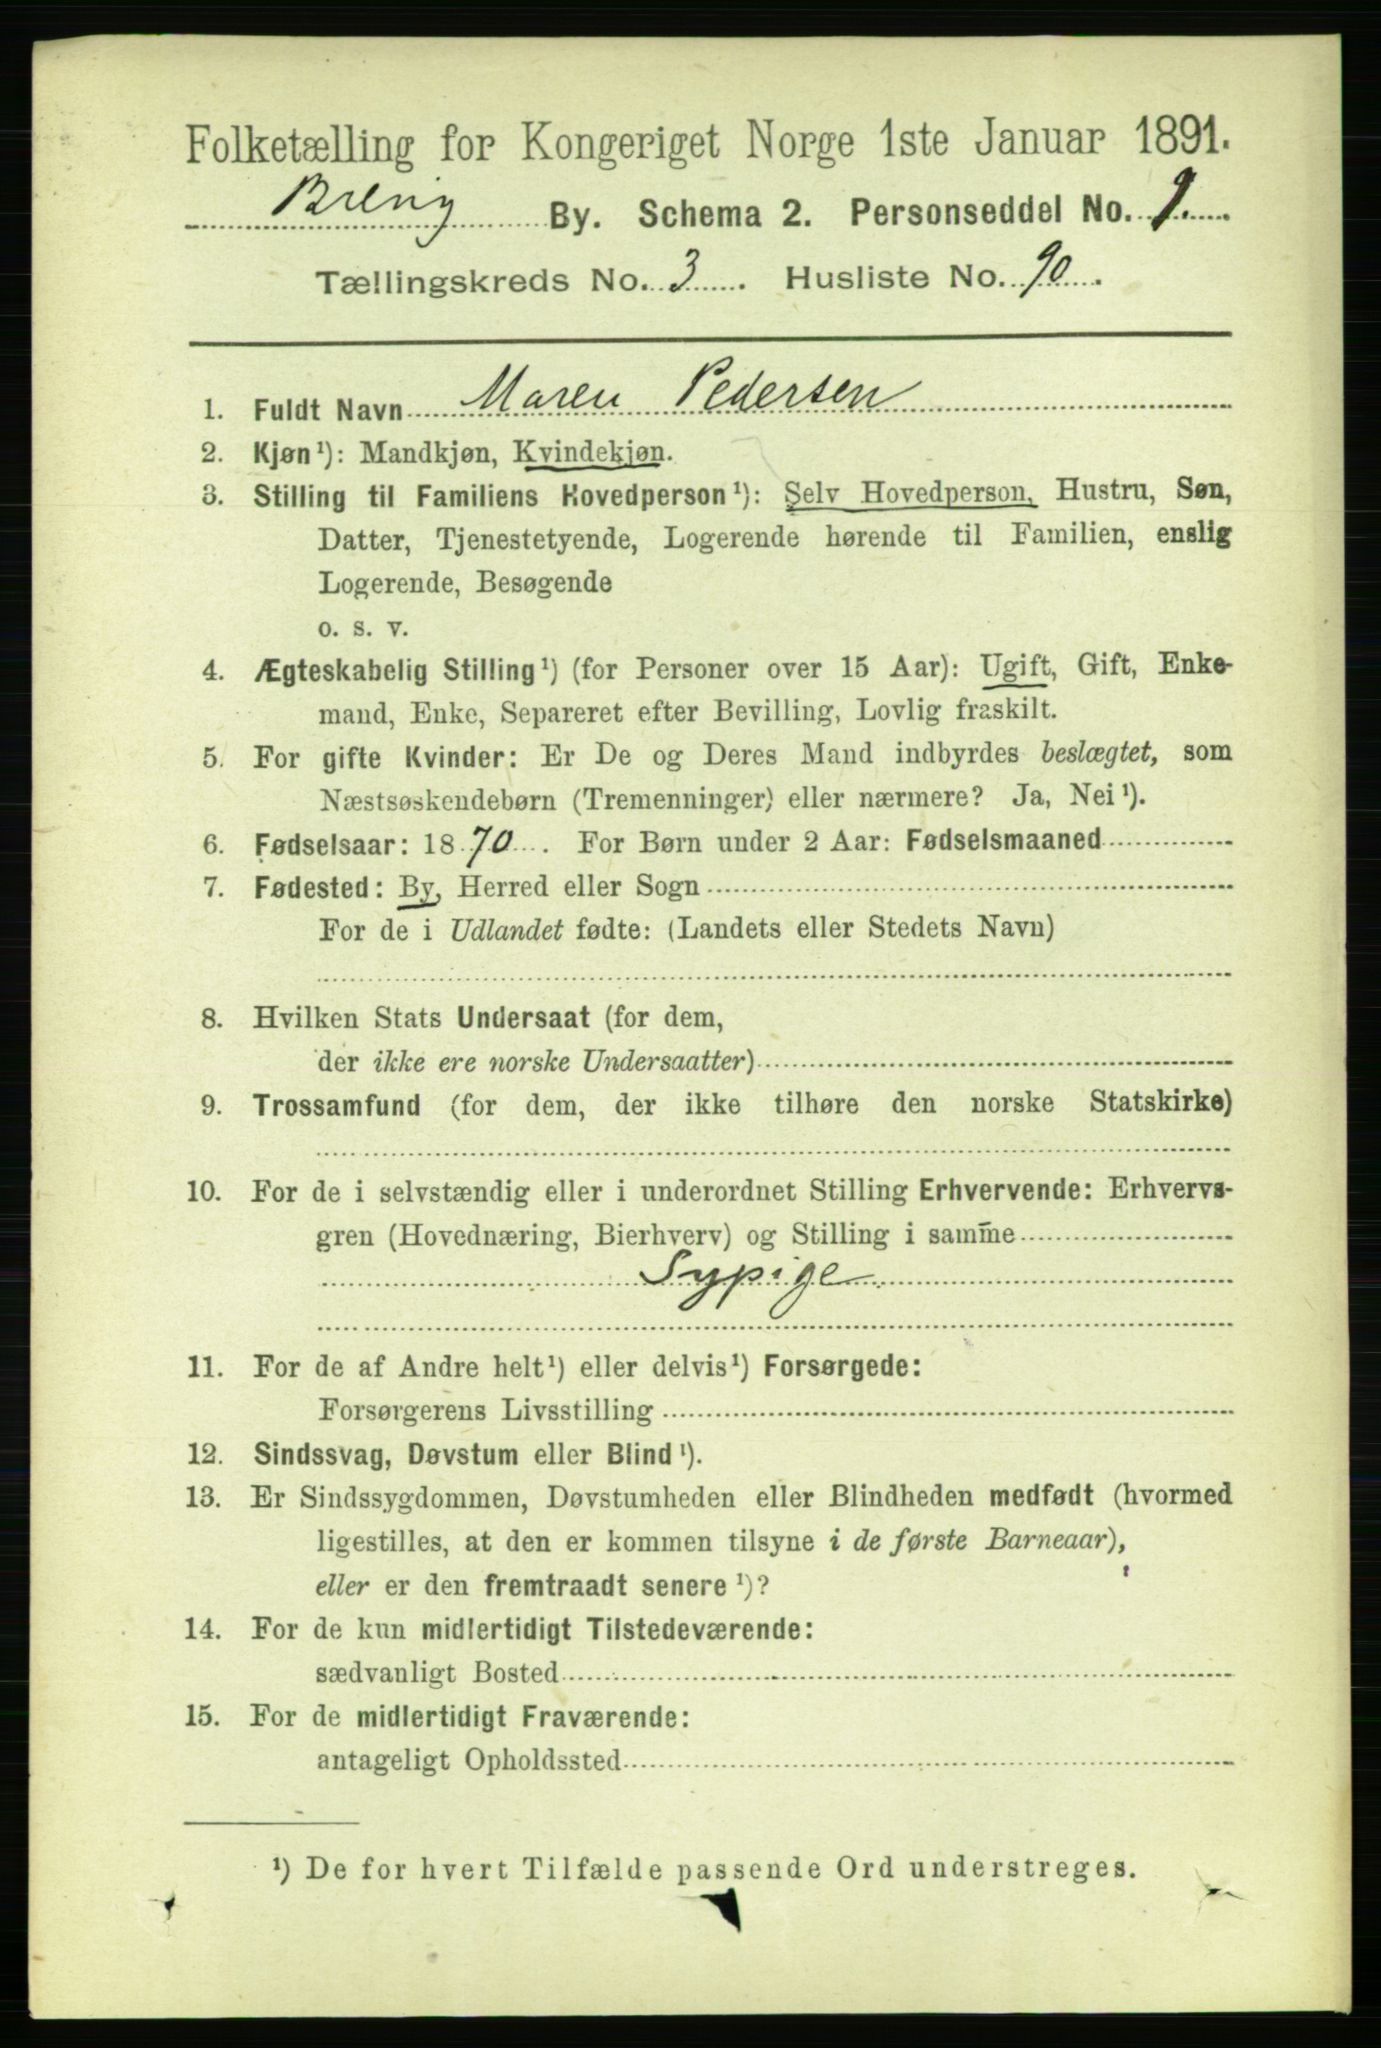 Folketælling for Kongeriget Norge 1ste Januar 1891.
Brevig By. Schema 2. Personseddel No. 1.
Tællingskreds No. 3. Husliste No. 90.
1. Fuldt Navn Maren Pedersen
2. Kjøn¹): Mandkjøn, Kvindekjøn.
3. Stilling til Familiens Hovedperson¹): Selv Hovedperson, Hustru, Søn,
Datter, Tjenestetyende, Logerende hørende til Familien, enslig
Logerende, Besøgende
o. s. v.
4. Ægteskabelig Stilling¹) (for Personer over 15 Aar): Ugift, Gift, Enke-
mand, Enke, Separeret efter Bevilling, Lovlig fraskilt.
5. For gifte Kvinder: Er De og Deres Mand indbyrdes beslægtet, som
Næstsøskendebørn (Tremenninger) eller nærmere? Ja, Nei¹).
6. Fødselsaar: 1870. For Børn under 2 Aar: Fødselsmaaned
7. Fødested: By, Herred eller Sogn
For de i Udlandet fødte: (Landets eller Stedets Navn)
8. Hvilken Stats Undersaat (for dem,
der ikke ere norske Undersaatter)
9. Trossamfund (for dem, der ikke tilhøre den norske Statskirke)
10. For de i selvstændig eller i underordnet Stilling Erhvervende: Erhvervs-
gren (Hovednæring, Bierhverv) og Stilling i samme
Sypige
11. For de af Andre helt¹) eller delvis¹) Forsørgede:
Forsørgerens Livsstilling
12. Sindssvag, Døvstum eller Blind¹).
13. Er Sindssygdommen, Døvstumheden eller Blindheden medfødt (hvormed
ligestilles, at den er kommen tilsyne i de første Barneaar),
eller er den fremtraadt senere¹)?
14. For de kun midlertidigt Tilstedeværende:
sædvanligt Bosted
15. For de midlertidigt Fraværende:
antageligt Opholdssted
¹) De for hvert Tilfælde passende Ord understreges.